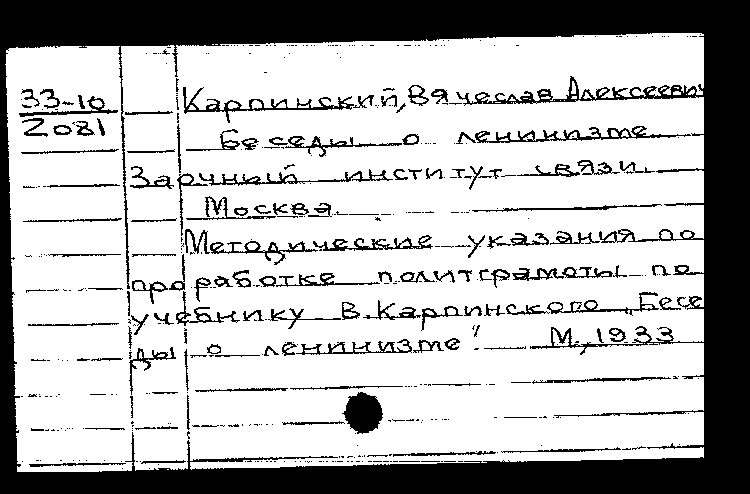 33-10
2081
Карпинский, Вячеслав Алексеевич
Беседы о ленинизме.
Заочный институт связи.
Москва.
Методические указания по
проработке политграмоты по
учебнику В.Карпинского „Бесе
ды о ленинизме". М., 1933